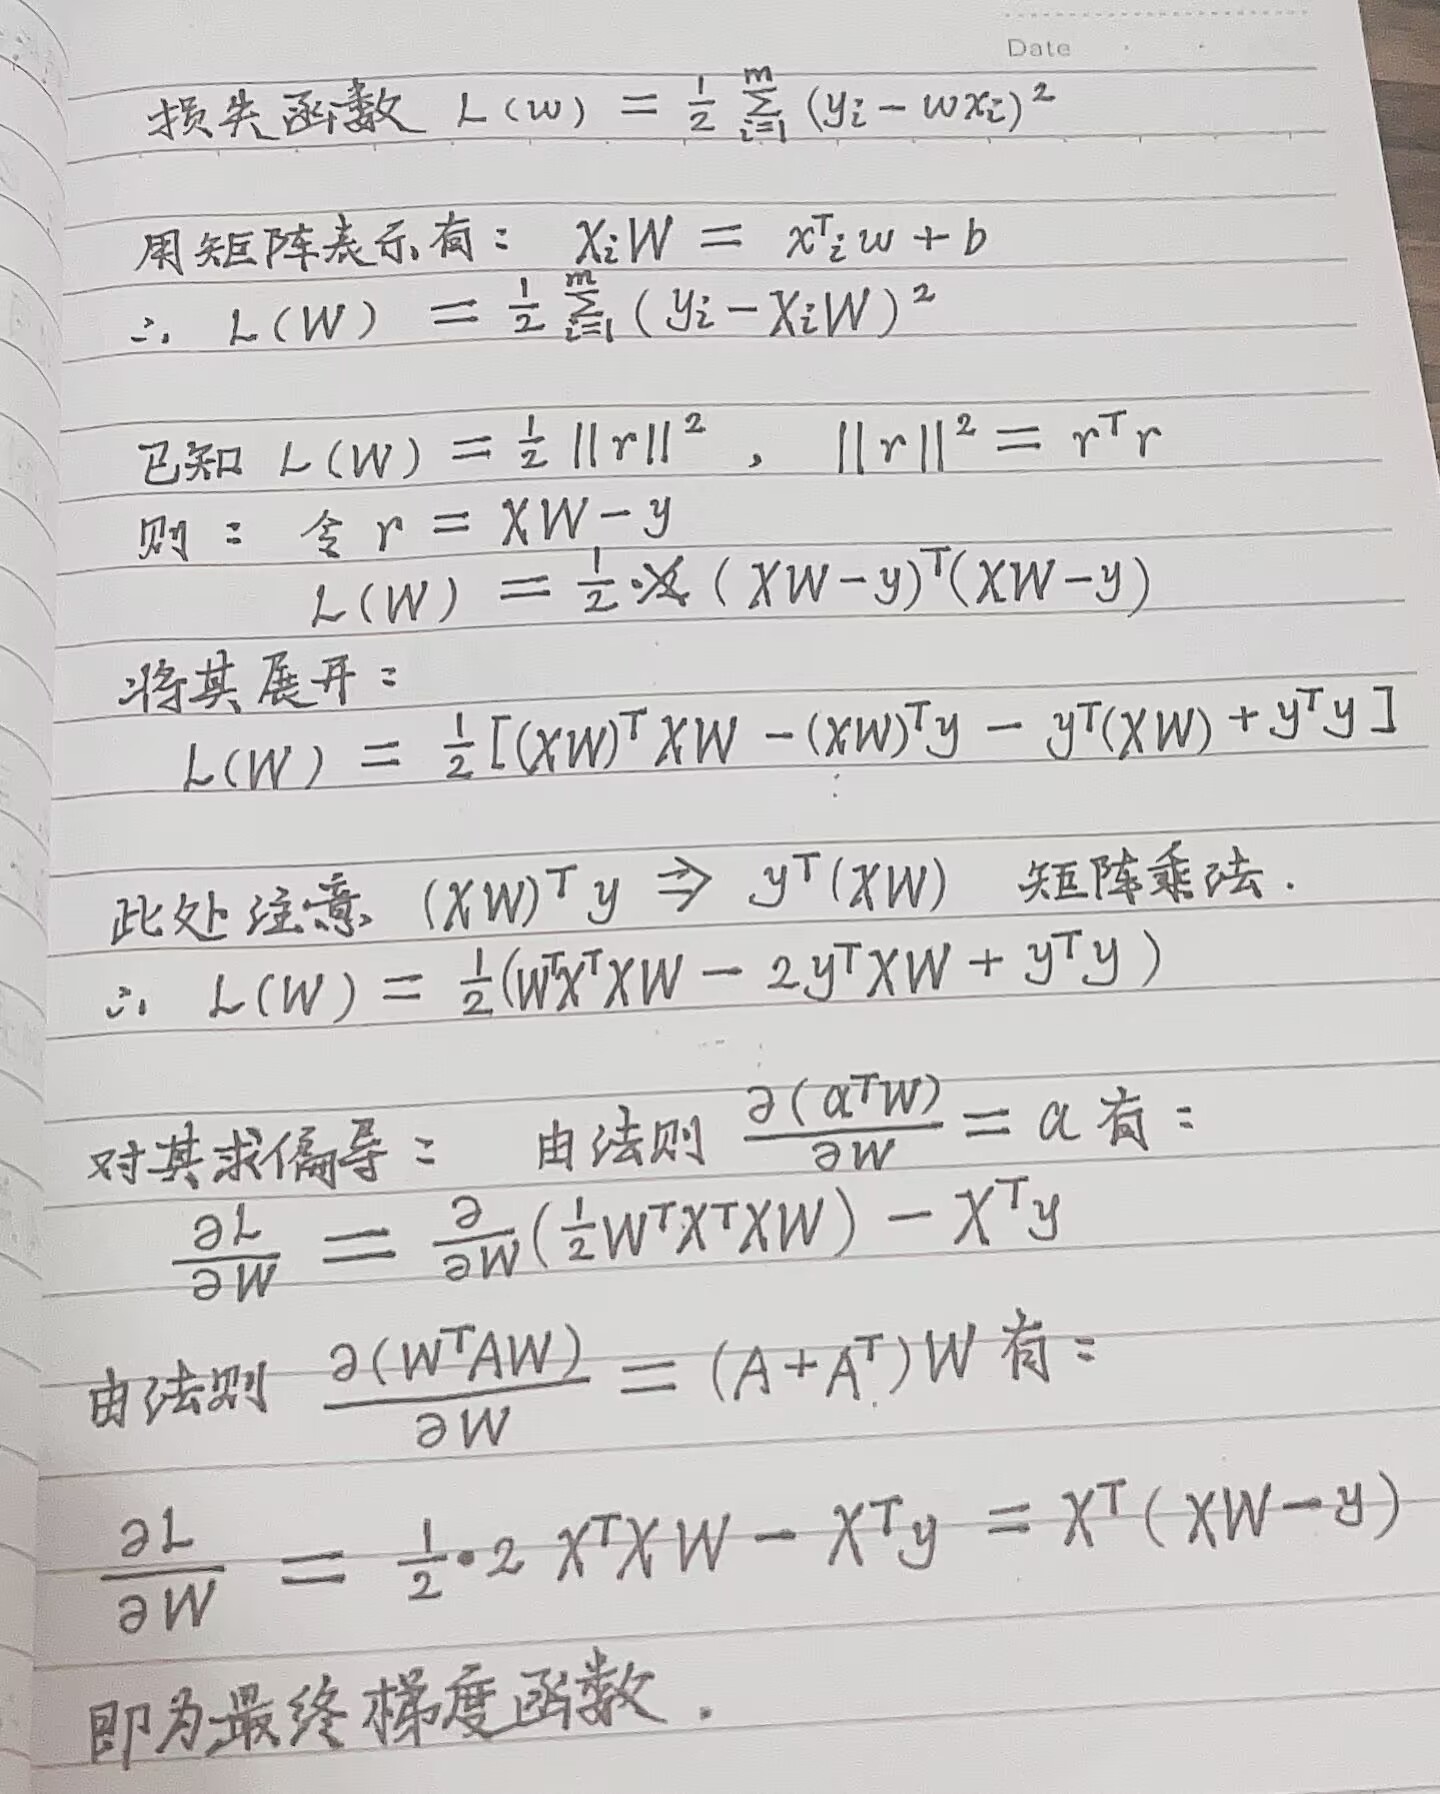 Date
损失函数 L(w) = 1/2 Σ_{i=1}^{m} (y_i - wx_i)^2
用矩阵表示有: X_iW = x^T_i w + b
∴ L(W) = 1/2 Σ_{i=1}^{m} (y_i - X_iW)^2
已知 L(W) = 1/2 ||r||^2 , ||r||^2 = r^T r
则: 令 r = XW - y
L(W) = 1/2 · (XW - y)^T(XW - y)
将其展开:
L(W) = 1/2 [(XW)^T XW - (XW)^T y - y^T(XW) + y^T y]
此处注意 (XW)^T y ⇒ y^T(XW) 矩阵乘法.
∴ L(W) = 1/2 (W^T X^T XW - 2y^T XW + y^T y)
对其求偏导: 由法则 ∂(a^T W)/∂W = a 有:
∂L/∂W = ∂/∂W (1/2 W^T X^T XW) - X^T y
由法则 ∂(W^T AW)/∂W = (A + A^T)W 有:
∂L/∂W = 1/2 · 2 X^T XW - X^T y = X^T (XW - y)
即为最终梯度函数.